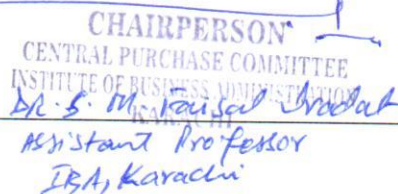 CHAIRPERSON
CENTRAL PURCHASE COMMITTEE
INSTITUTE OF BUSINESS ADMINISTRATION
KARACHI
Dr. S. M. Faisal Iradat
Assistant Professor
IBA, Karachi